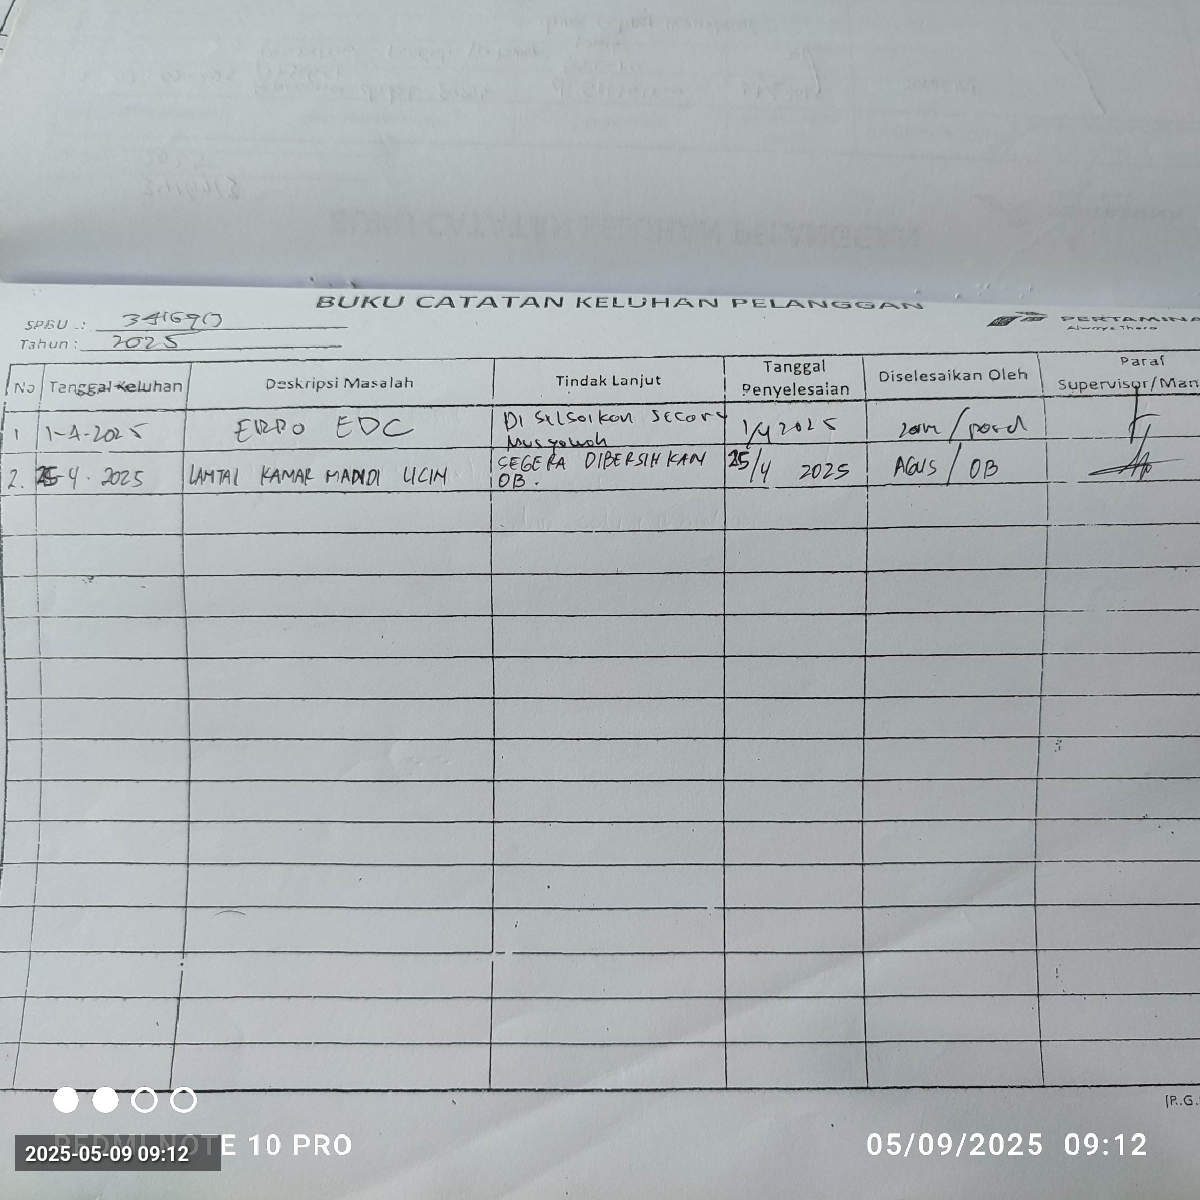 BUKU CATATAN KELUHAN PELANGGAN
SPBU .:
Tahun : 2025
PERTAMINA
Always There
No Tanggal Keluhan Deskripsi Masalah Tindak Lanjut Tanggal Penyelesaian Diselesaikan Oleh Paraf Supervisor/Man
1 1-4-2025 ERRO EDC Di selsaikan secara Musyawah 1/4 2025
2. 25-4-2025 LANTAI KAMAR MANDI LICIN SEGERA DIBERSIHKAN OB. 25/4 2025 AGUS / OB
[P.G.
REDMI NOTE 10 PRO
2025-05-09 09:12
05/09/2025 09:12